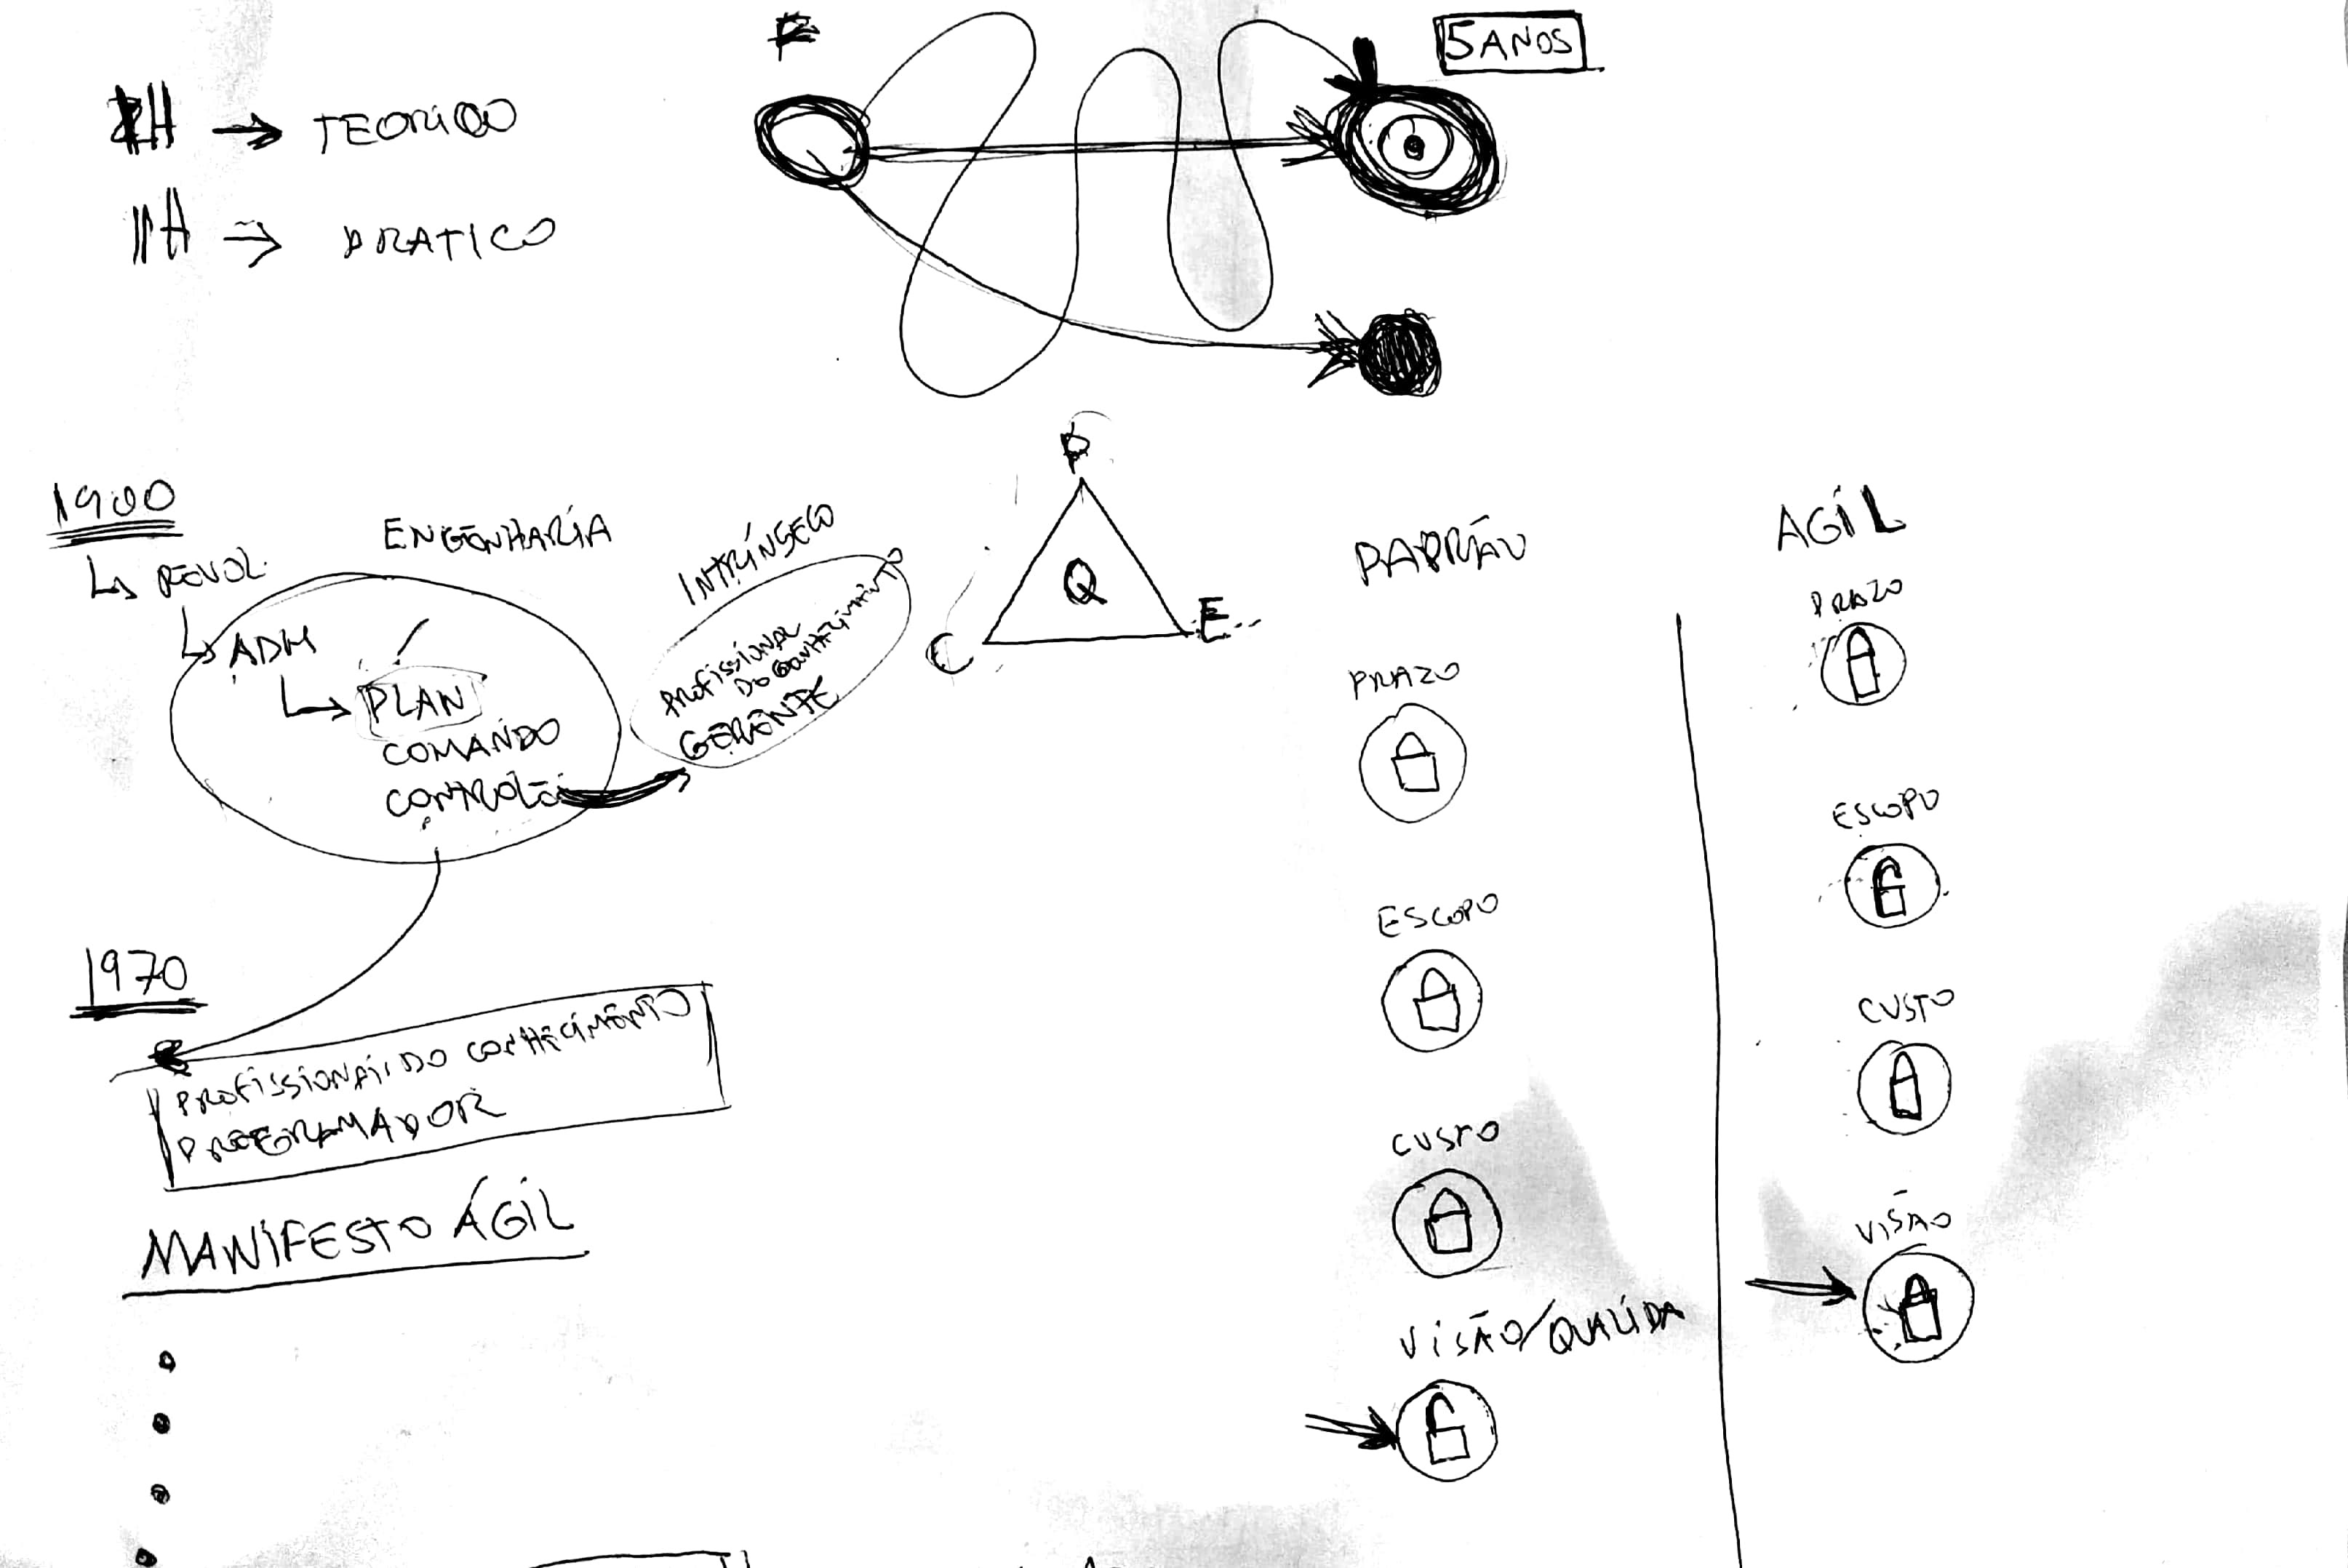 → TEORICO
→ PRATICO
5 ANOS
1900
↳ REVOL.
↳ ADM
↳ PLAN
COMANDO
CONTROLE
ENGENHARIA
INTRÍNSECO
PROFISSIONAL
DO CONHECIMENTO
GERENTE
P
Q
C
E
1970
PROFISSIONAIS DO CONHECIMENTO
PROGRAMADOR
MANIFESTO ÁGIL
PADRÃO
PRAZO
ESCOPO
CUSTO
VISÃO/QUALIDA
AGIL
PRAZO
ESCOPO
CUSTO
VISÃO